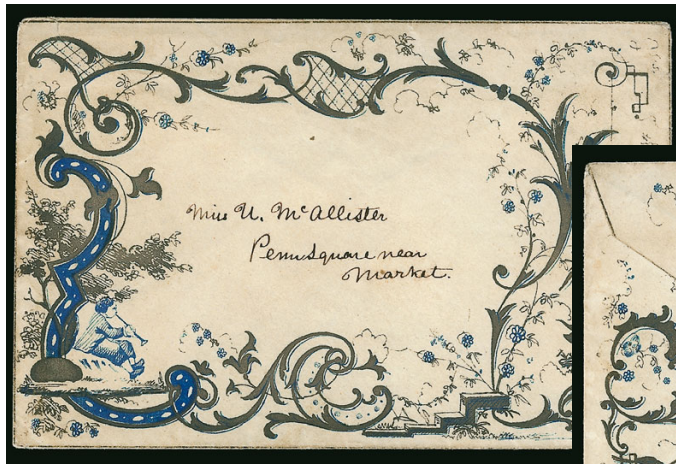 Miss U. McAllister
Penn Square near
Market.